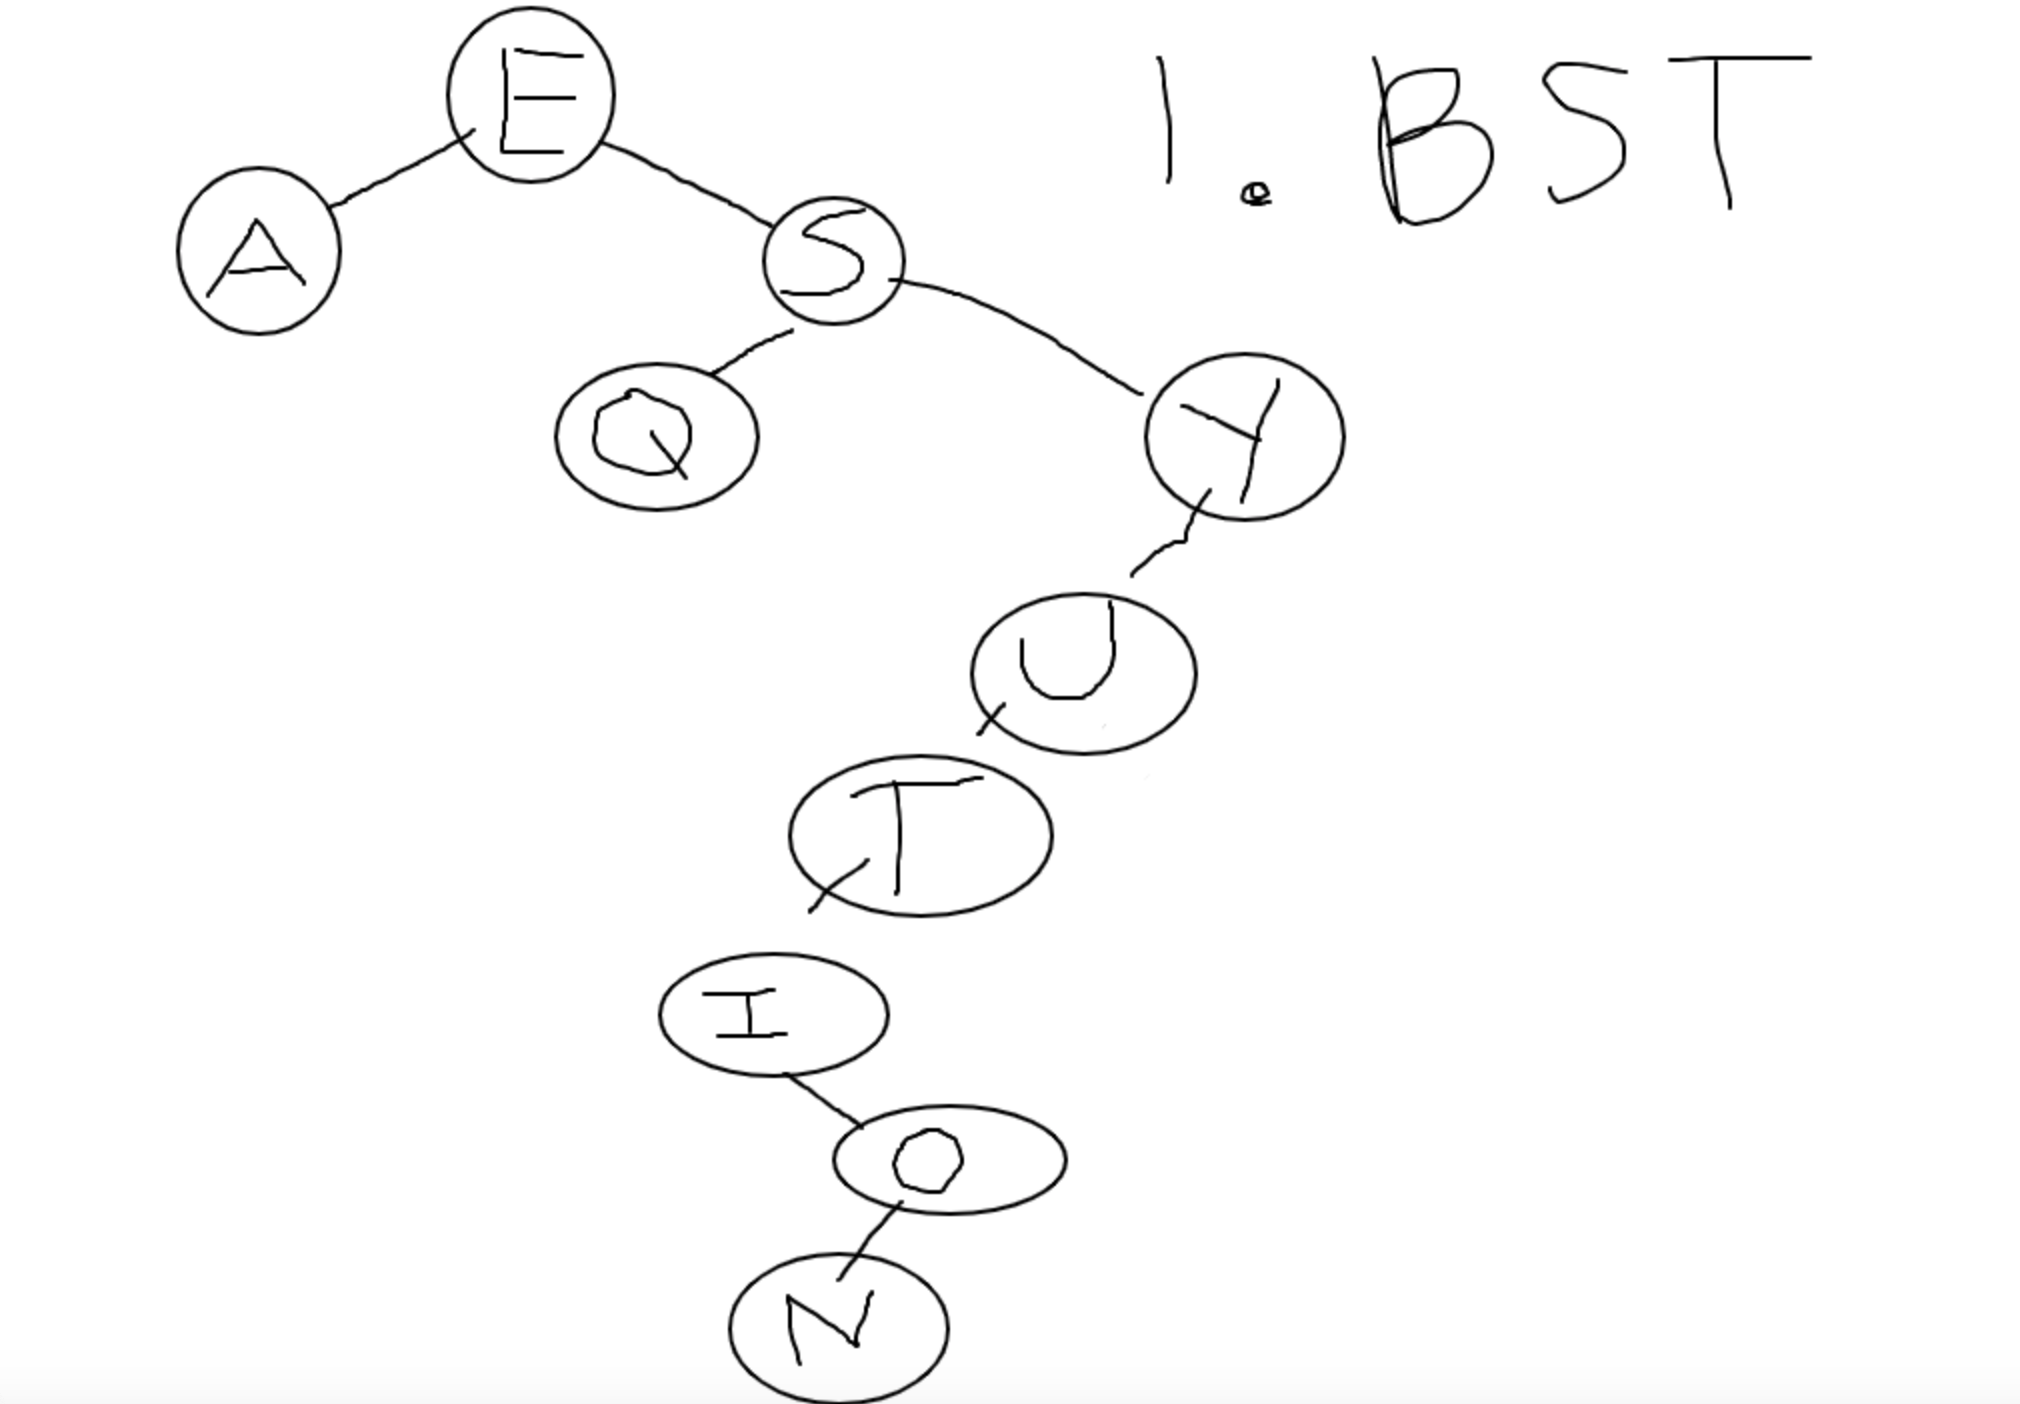 1. BST
E
A
S
Q
Y
U
T
I
O
N